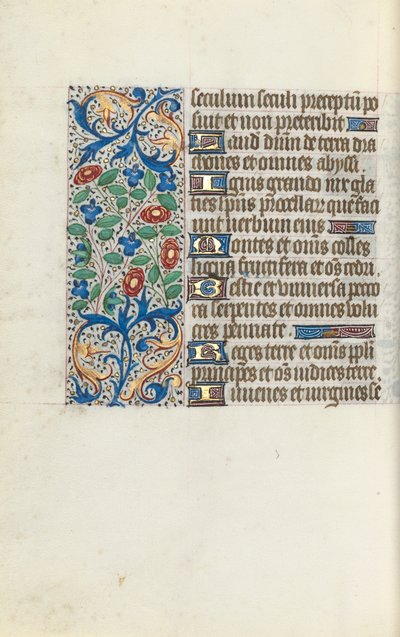 seculum seculi preceptū po
suit et non preteribit
Laud dñm de terra dra
chones et omnes abyssi
Ignis grando nix gla
cies spūs procellar que faci
unt verbum eius
Montes et omīs colles
ligna fructifera et oēs cedri
Bestie et universa peco
ra serpentes et omnes volu
cres pennate
Reges terre et omīs ppli
principes et oēs iudices terre
Iuvenes et virgines se